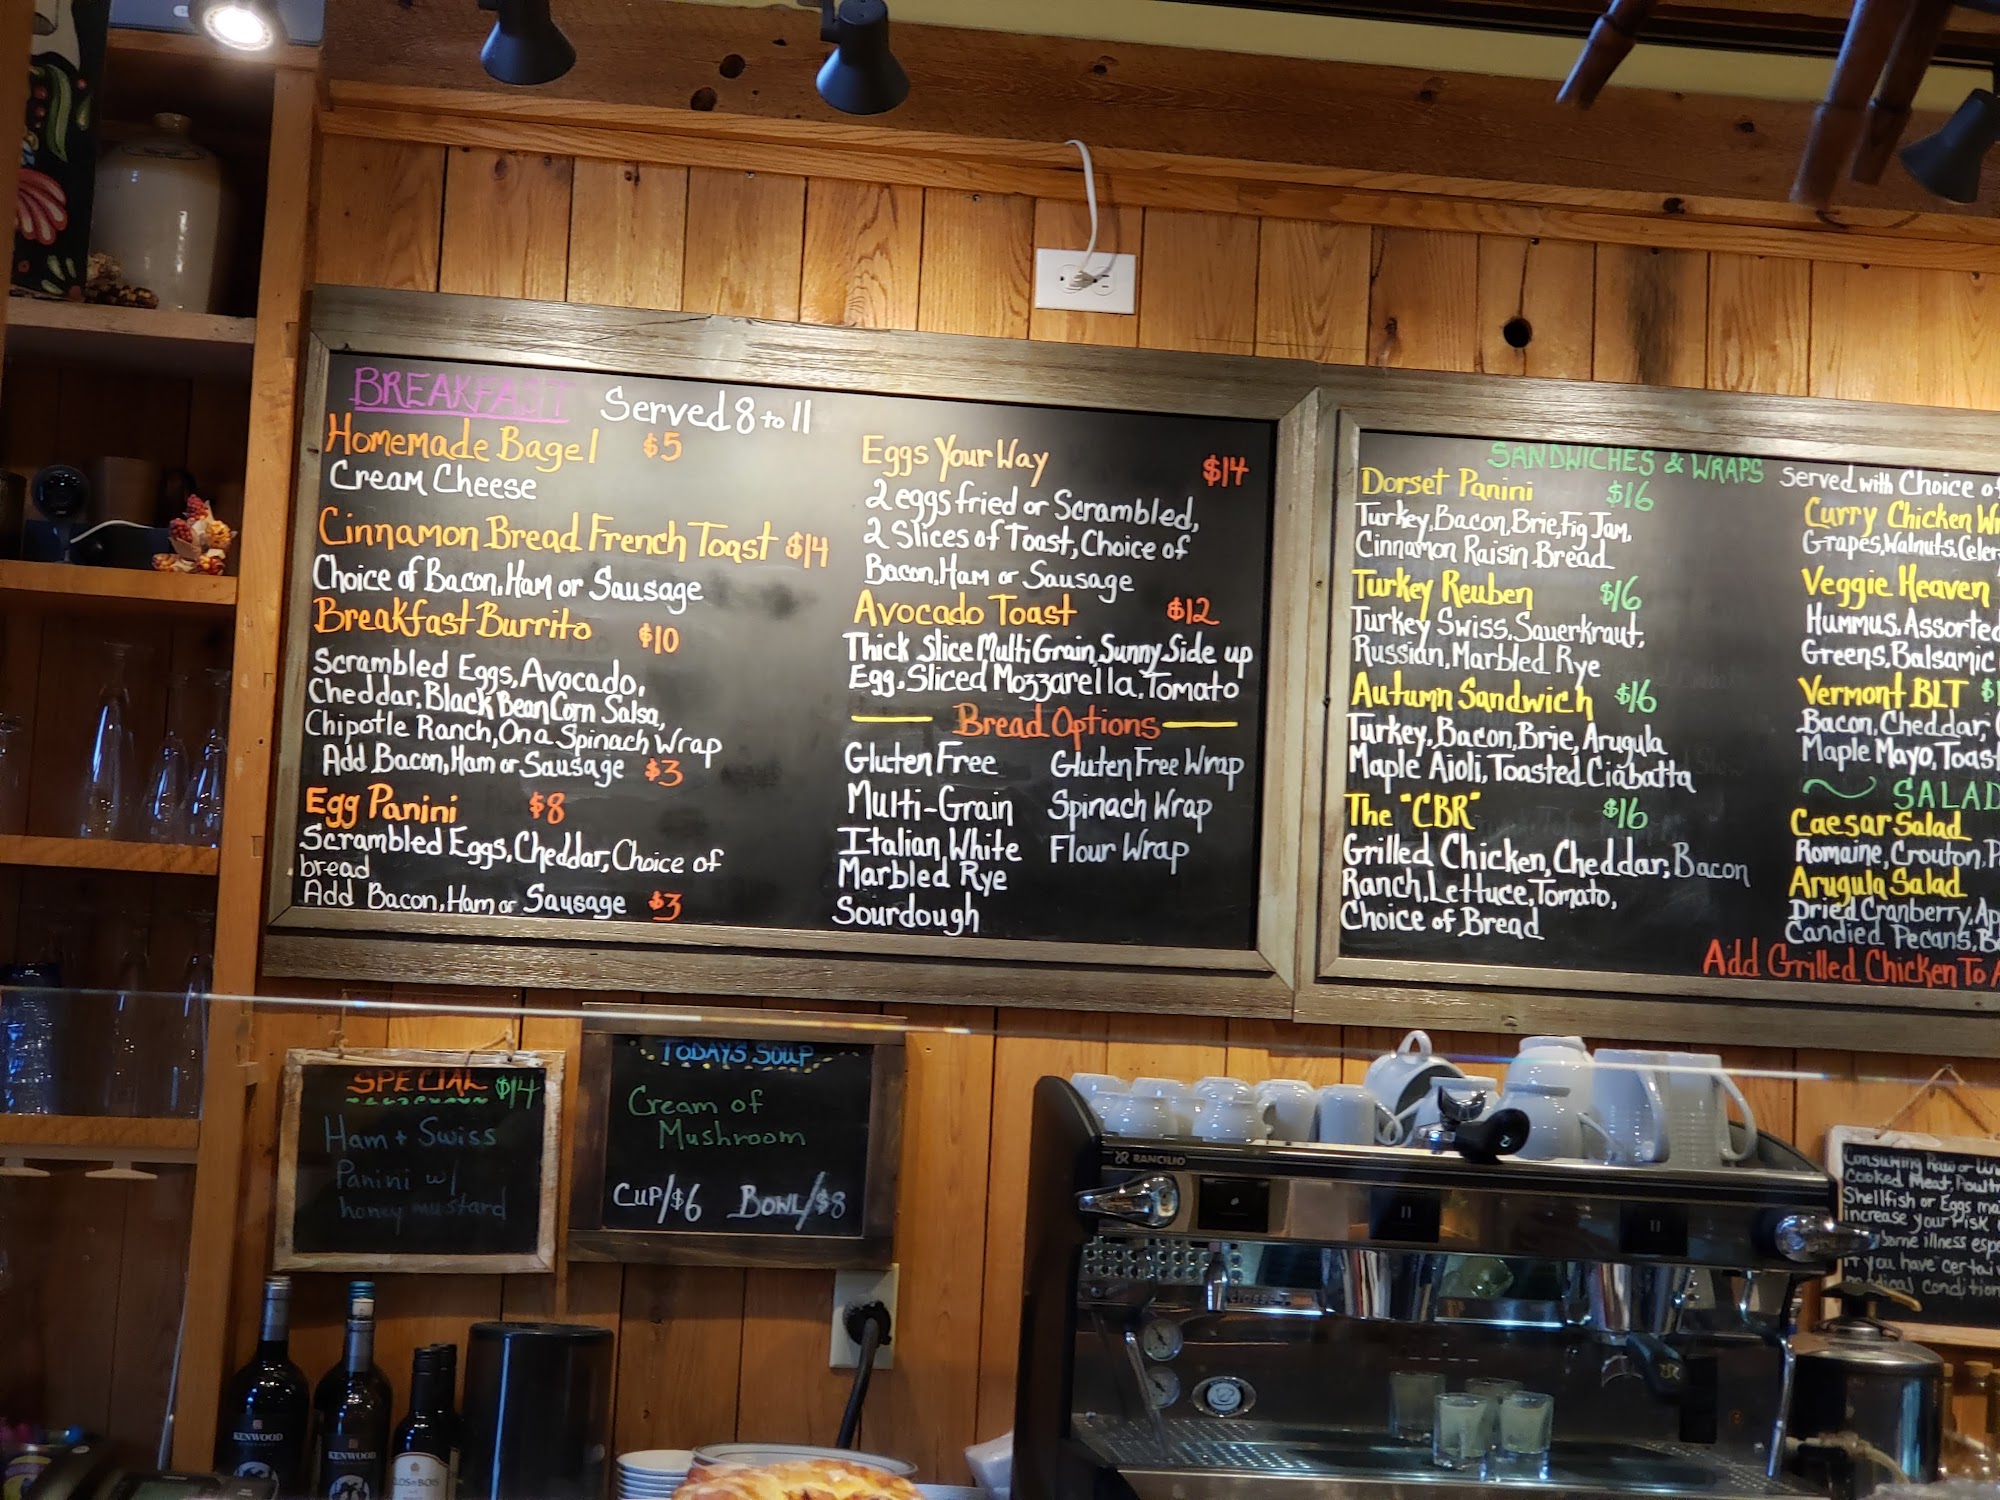 BREAKFAST Served 8 to 11
Homemade Bagel $5
Cream Cheese
Cinnamon Bread French Toast $14
Choice of Bacon, Ham or Sausage
Breakfast Burrito $10
Scrambled Eggs, Avocado,
Cheddar, Black Bean Corn Salsa,
Chipotle Ranch, On a Spinach Wrap
Add Bacon, Ham or Sausage $3
Egg Panini $8
Scrambled Eggs, Cheddar, Choice of
bread
Add Bacon, Ham or Sausage $3
Eggs Your Way $14
2 eggs fried or Scrambled,
2 Slices of Toast, Choice of
Bacon, Ham or Sausage
Avocado Toast $12
Thick Slice Multi Grain, Sunny Side up
Egg, Sliced Mozzarella, Tomato
Bread Options
Gluten Free
Multi-Grain
Italian White
Marbled Rye
Sourdough
Gluten Free Wrap
Spinach Wrap
Flour Wrap
SANDWICHES & WRAPS Served with Choice of
Dorset Panini $16
Turkey, Bacon, Brie, Fig Jam,
Cinnamon Raisin Bread
Turkey Reuben $16
Turkey Swiss, Sauerkraut,
Russian, Marbled Rye
Autumn Sandwich $16
Turkey, Bacon, Brie, Arugula
Maple Aioli, Toasted Ciabatta
The "CBR" $16
Grilled Chicken, Cheddar, Bacon
Ranch, Lettuce, Tomato,
Choice of Bread
Curry Chicken
Grapes, Walnuts,
Veggie Heaven
Hummus, Assorted
Greens, Balsamic
Vermont BLT
Bacon, Cheddar,
Maple Mayo,
Caesar Salad
Romaine, Crouton,
Arugula Salad
Dried Cranberry,
Candied Pecans,
Add Grilled Chicken To
SPECIAL $14
Ham + Swiss
Panini w/
honey mustard
TODAYS SOUP
Cream of
Mushroom
CUP/$6 BOWL/$8
RANCILIO
Consuming Raw or
Cooked Meat,
Shellfish or Eggs
increase your risk
illness
if you have
medical
KENWOOD
KENWOOD